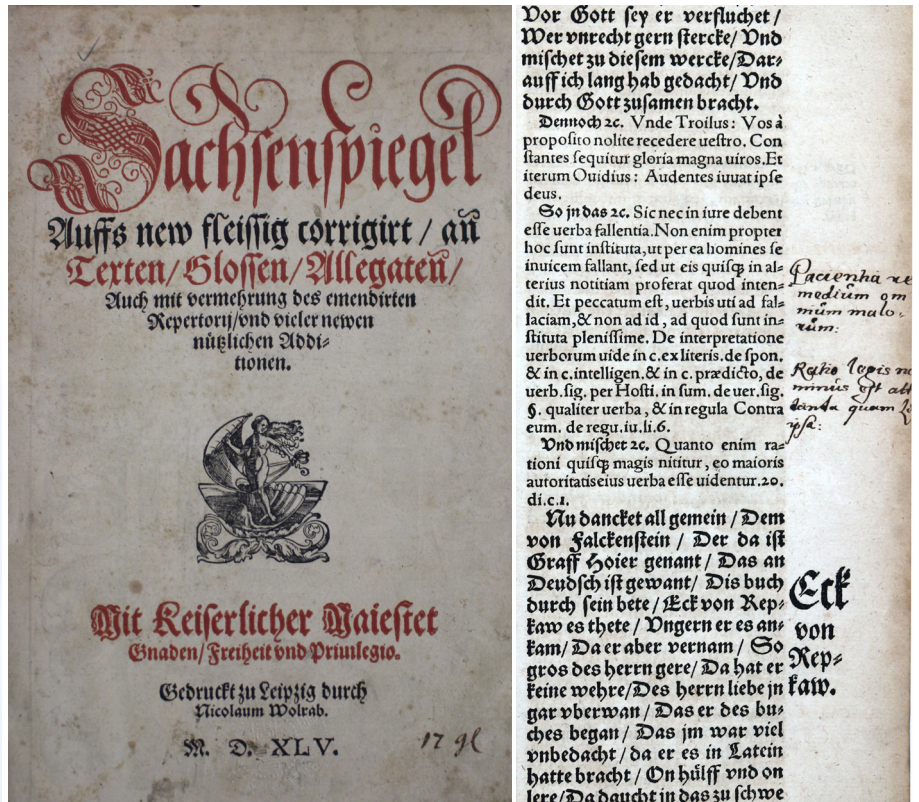 Sachsenspiegel
Auffs new fleissig corrigirt / an
Texten/Glossen/Allegaten/
Auch mit vermehrung des emendirten
Repertorij/vnd vieler newen
nützlichen Addi-
tionen.
Mit Keiserlicher Maiestet
Gnaden/Freiheit vnd Priuilegio.
Gedruckt zu Leipzig durch
Nicolaum Wolrab.
M. D. XLV.
Vor Gott sey er verfluchet /
Wer vnrecht gern stercke/ Vnd
mischet zu diesem wercke/Dar-
auff ich lang hab gedacht/ Vnd
durch Gott zusamen bracht.
Dennoch ꝛc. Vnde Troilus: Vos à
proposito nolite recedere uestro. Con
stantes sequitur gloria magna uiros.Et
iterum Ouidius: Audentes iuuat ipse
deus.
So jn das ꝛc. Sic nec in iure debent
esse uerba fallentia.Non enim propter
hoc sunt instituta,ut per ea homines se
inuicem fallant, sed ut eis quisq; in al-
terius notitiam proferat quod inten-
dit. Et peccatum est, uerbis uti ad fal-
laciam,& non ad id, ad quod sunt in-
stituta plenissime. De interpretatione
uerborum uide in c.ex literis.de spon.
& in c.intelligen.& in c. prædicto, de
uerb.sig. per Hosti. in sum. de uer.sig.
§. qualiter uerba, & in regula Contra
eum. de regu.iu.li.6.
Vnd mischet ꝛc. Quanto enim ra-
tioni quisq; magis nititur, eo maioris
autoritatis eius uerba esse uidentur.20.
di.c.1.
Nu dancket all gemein / Dem
von Falckenstein / Der da ist
Graff Hoier genant / Das an
Deudsch ist gewant/ Dis buch
durch sein bete / Eck von Rep-
kaw es thete / Vngern er es an-
kam/ Da er aber vernam / So
gros des herrn gere/ Da hat er
keine wehre/Des herrn liebe jn
gar vberwan / Das er des bu-
ches began / Das jm war viel
vnbedacht / da er es in Latein
hatte bracht / On hülff vnd on
lere/Da daucht in das zu schwe
medium om
mum malo-
rum:
minus est
quam
ipsa:
Eck
von
Rep-
kaw.